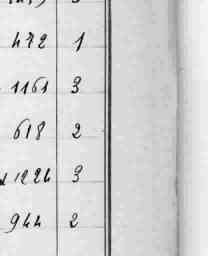 472 1
1161 3
618 2
1224 3
944 2